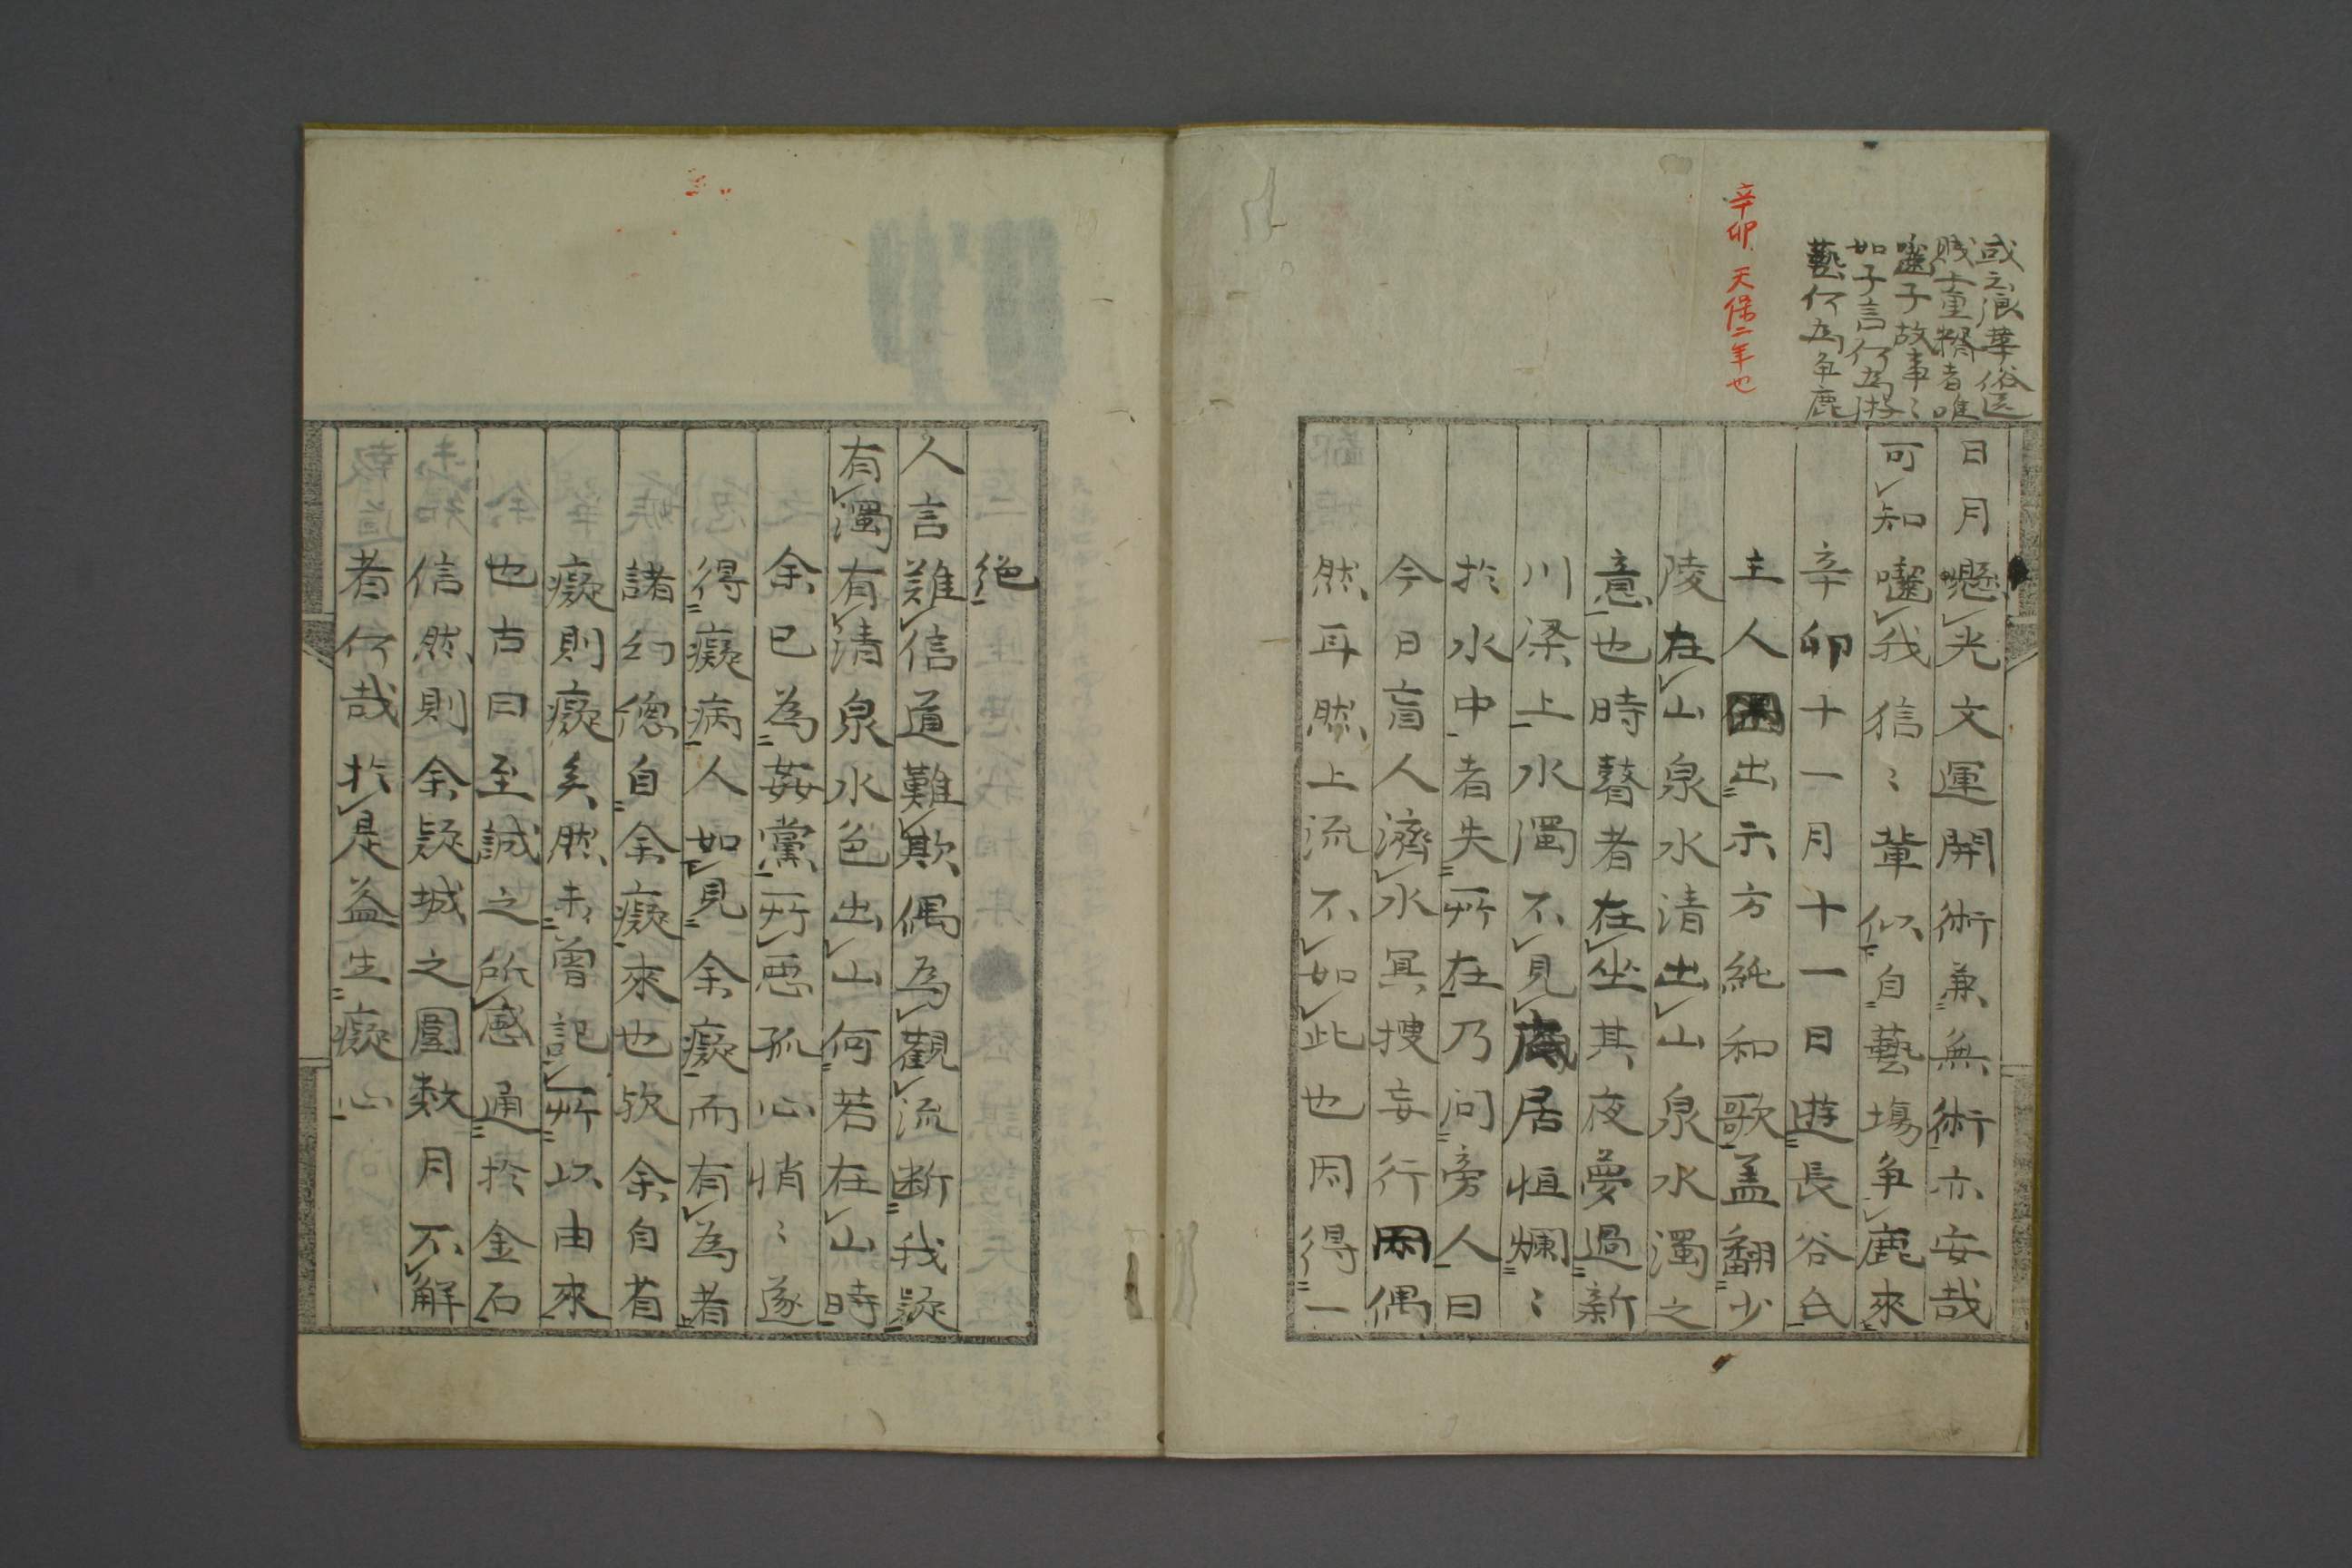 或云浪華俗邈
賤士重糈者唯
噬子故事〻
如子言何為游
藝何為争鹿
辛卯天保二年也
日月懸光文運開術兼無術亦安哉
可知噬我狺〻輩似自藝場争鹿來
辛卯十一月十一日遊長谷氏
主人出示方純和歌盖翻少
陵在山泉水清出山泉水濁之
意也時瞽者在坐其夜夢過新
川梁上水濁不見底居恒爛〻
扵水中者失所在乃问旁人曰
今日盲人濟水冥搜妄行罔偶
然耳然上流不如此也因得一
絶
人言難信道難欺偶為觀流断我疑
有濁有清泉水色出山何若在山時
余已為姦黨所惡孤心悄〻遂
得癡病人如見余癡而有為者
諸幻偬自余癡來也欤余自省
癡則癡矣然未曽記所以由來
也古曰至誠之所感通扵金石
信然則余疑城之圍数月不解
者何哉扵是益生癡心